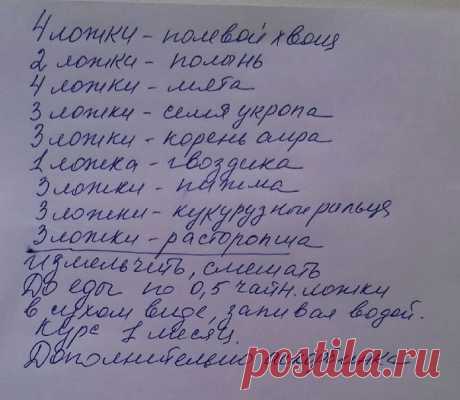 4 ложки - полевой хвощ
2 ложки - полынь
4 ложки - мята
3 ложки - семя укропа
3 ложки - корень аира
1 ложка - гвоздика
3 ложки - пижма
3 ложки - кукурузные рыльца
3 ложки - расторопша
измельчить, смешать
До еды по 0,5 чайн. ложки
в сухом виде, запивая водой.
Курс 1 месяц.
Дополнительно
postila.ru